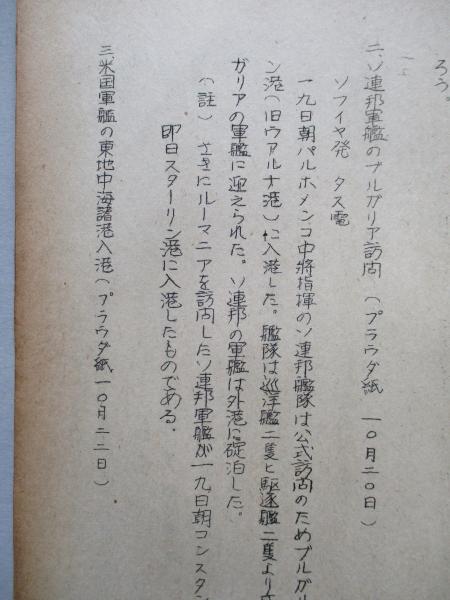 ろう。
二、ソ連邦軍艦のブルガリア訪問　(プラウダ紙　一〇月二〇日)
ソフイヤ発　タス電
一九日朝パルホメンコ中將指揮のソ連邦艦隊は公式訪問のためブルガリ
ン港(旧ウアルナ港)に入港した。艦隊は巡洋艦二隻と駆逐艦二隻より
ガリアの軍艦に迎えられた。ソ連邦の軍艦は外港に碇泊した。
(註)　さきにルーマニアを訪問したソ連邦軍艦が一九日朝コンスタン
即日スターリン港に入港したものである.
三、米国軍艦の東地中海諸港入港(プラウダ紙一〇月二二日)